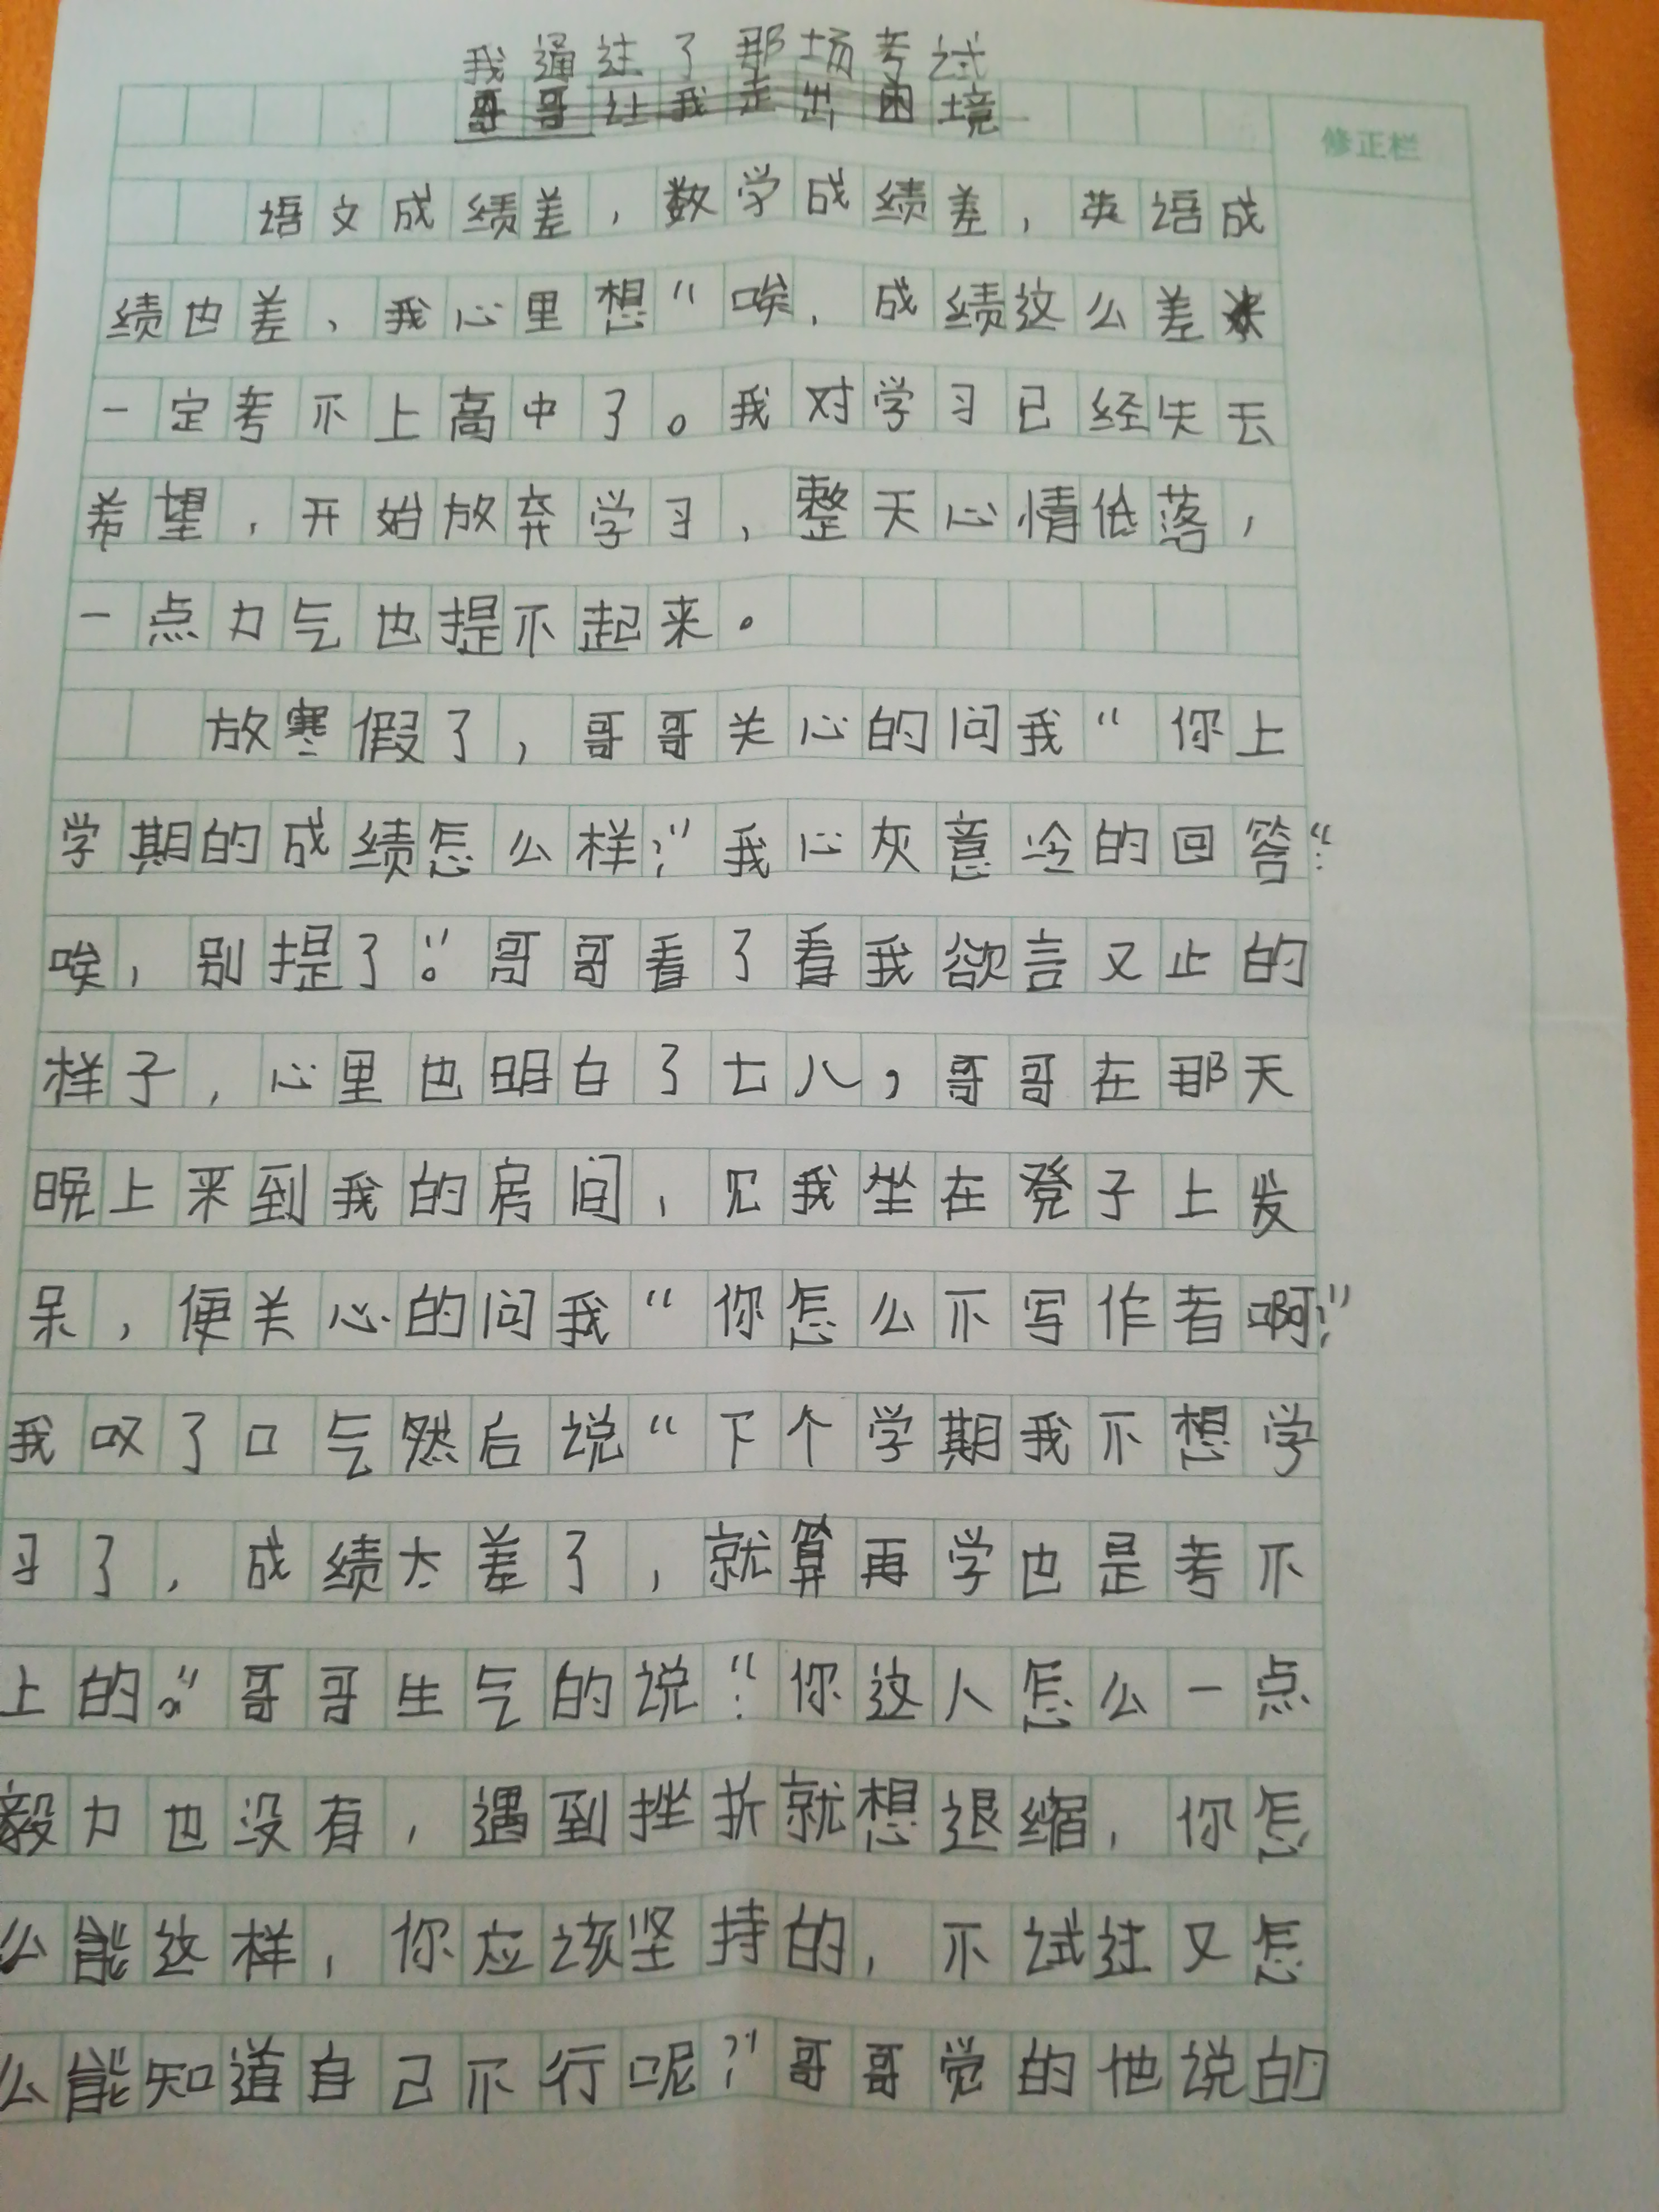 我通过了那场考试
哥哥让我走出困境
修正栏
语文成绩差，数学成绩差，英语成
绩也差，我心里想“唉，成绩这么差
一定考不上高中了。我对学习已经失去
希望，开始放弃学习，整天心情低落，
一点力气也提不起来。
放寒假了，哥哥关心的问我“你上
学期的成绩怎么样？”我心灰意冷的回答：“
唉，别提了。”哥哥看了看我欲言又止的
样子，心里也明白了七八，哥哥在那天
晚上来到我的房间，见我坐在凳子上发
呆，便关心的问我“你怎么不写作者啊？”
我叹了口气然后说“下个学期我不想学
习了，成绩太差了，就算再学也是考不
上的。”哥哥生气的说：“你这人怎么一点
毅力也没有，遇到挫折就想退缩，你怎
么能这样，你应该坚持的，不试过又怎
么能知道自己不行呢？”哥哥觉的他说的